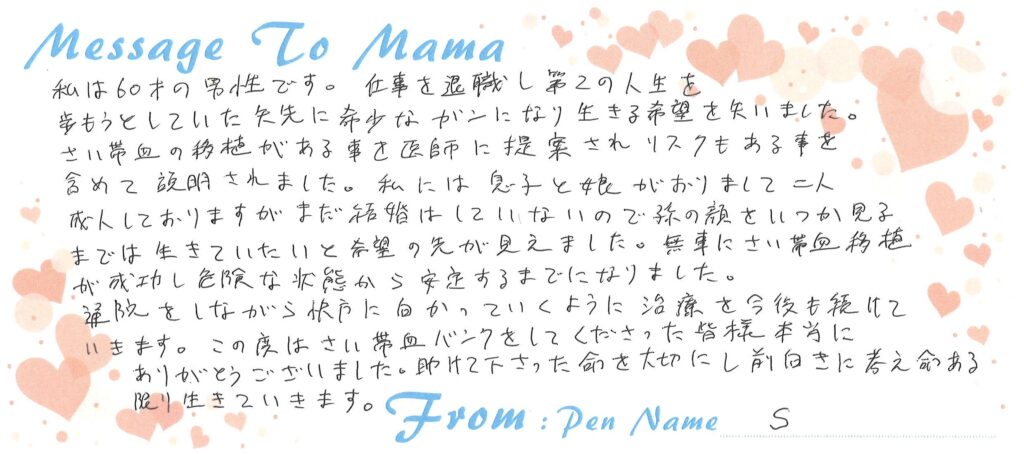 Message To Mama
私は60才の男性です。 仕事を退職し第2の人生を
歩もうとしていた矢先に希少なガンになり生きる希望を失いました。
さい帯血の移植がある事を医師に提案されリスクもある事を
含めて説明されました。私には息子と娘がおりまして二人
成人しておりますがまだ結婚はしていないので孫の顔をいつか見る
までは生きていたいと希望の先が見えました。無事にさい帯血移植
が成功し危険な状態から安定するまでになりました。
通院をしながら快方に向かっていくように治療を今後も続けて
いきます。この度はさい帯血バンクをしてくださった皆様本当に
ありがとうございました。助けて下さった命を大切にし前向きに考え命ある
限り生きていきます。
From : Pen Name S